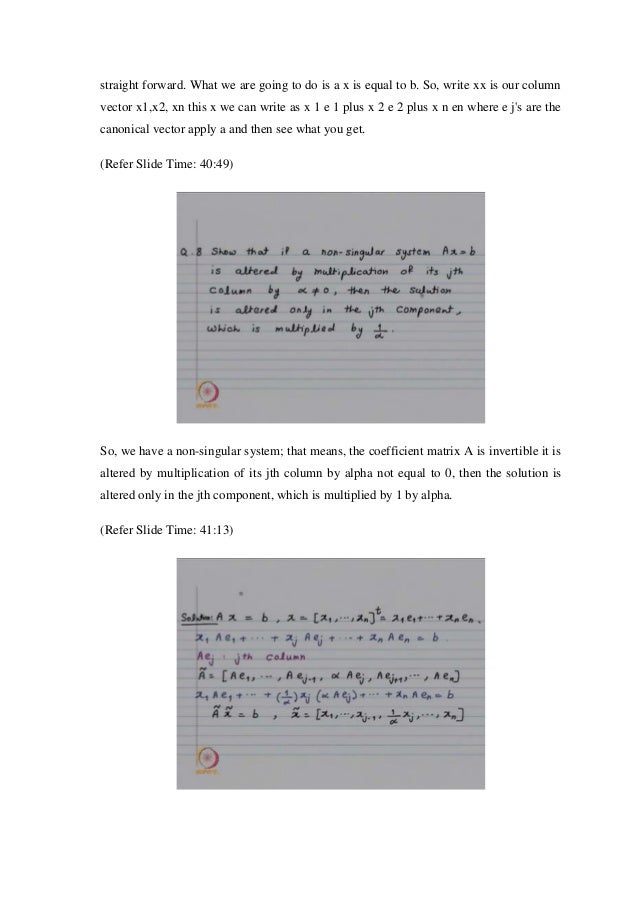 straight forward. What we are going to do is a x is equal to b. So, write xx is our column
vector x1,x2, xn this x we can write as x 1 e 1 plus x 2 e 2 plus x n en where e j's are the
canonical vector apply a and then see what you get.
(Refer Slide Time: 40:49)
Q.8 Show that if a non-singular system Ax=b
is altered by multiplication of its jth
column by α≠0, then the solution
is altered only in the jth component,
which is multiplied by 1/α.
So, we have a non-singular system; that means, the coefficient matrix A is invertible it is
altered by multiplication of its jth column by alpha not equal to 0, then the solution is
altered only in the jth component, which is multiplied by 1 by alpha.
(Refer Slide Time: 41:13)
Solution: A x = b, x = [x₁,⋯,xₙ]ᵗ = x₁e₁+⋯+xₙeₙ.
x₁Ae₁+⋯+xⱼAeⱼ+⋯+xₙAeₙ = b.
Aeⱼ : jth column
Ã = [Ae₁,⋯, Aeⱼ₋₁, αAeⱼ, Aeⱼ₊₁,⋯, Aeₙ]
x₁Ae₁+⋯+(1/α)xⱼ(αAeⱼ)+⋯+xₙAeₙ=b
Ãx̃ = b, x̃ = [x₁,⋯,xⱼ₋₁, 1/α xⱼ,⋯, xₙ]